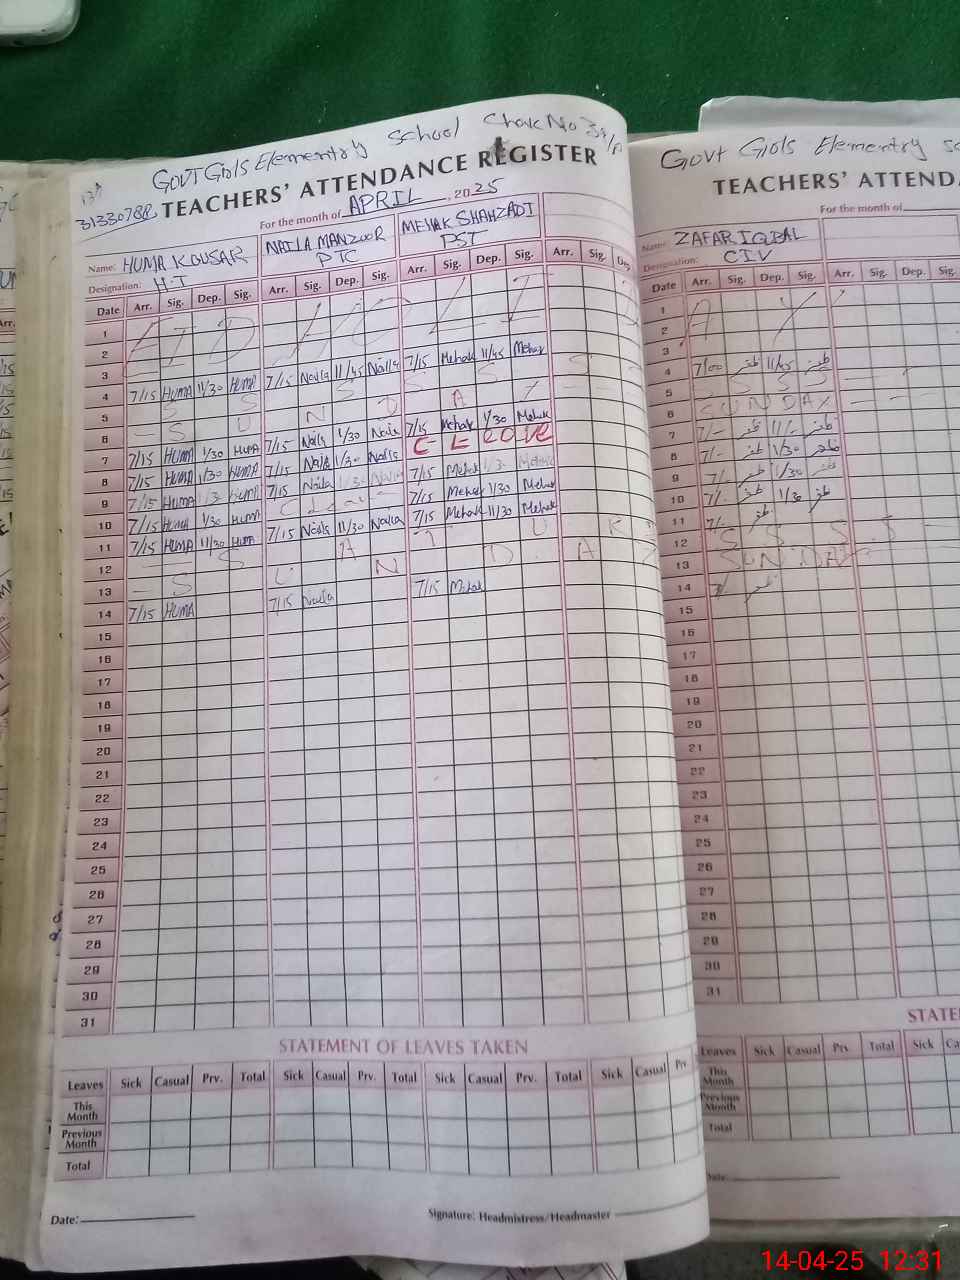 Govt Girls Elementry School Chak No 39/A
TEACHERS' ATTENDANCE REGISTER
31330788
For the month of APRIL, 2025
Name: HUMA KOUSAR NAILA MANZOOR MEHAK SHAHZADI
Designation: H.T PTC PST
Date Arr. Sig. Dep. Sig. Arr. Sig. Dep. Sig. Arr. Sig. Dep. Sig. Arr. Sig. Dep.
1
2
3
4 7/15 HUMA 11/30 HUMA 7/15 Naila 11/45 Naila 7/15 Mehak 11/45 Mehak
5
6 S U N D A Y
7 7/15 HUMA 1/30 HUMA 7/15 Naila 1/30 Naila 7/15 Mehak 1/30 Mehak
8 7/15 HUMA 1/30 HUMA 7/15 Naila 1/30 Naila C L eave
9 7/15 HUMA 1/30 HUMA 7/15 Naila 1/30 Naila 7/15 Mehak 1/30 Mehak
10 7/15 HUMA 1/30 HUMA C leave 7/15 Mehak 1/30 Mehak
11 7/15 HUMA 11/30 HUMA 7/15 Naila 11/30 Naila 7/15 Mehak 11/30 Mehak
12
13 S U N D A Y
14 7/15 HUMA 7/15 Naila 7/15 Mehak
15
16
17
18
19
20
21
22
23
24
25
26
27
28
29
30
31
STATEMENT OF LEAVES TAKEN
Leaves Sick Casual Prv. Total Sick Casual Prv. Total Sick Casual Prv. Total Sick Casual Prv.
This Month
Previous Month
Total
Date: Signature: Headmistress/Headmaster
Govt Girls Elementry
TEACHERS' ATTEND
For the month of
Name: ZAFAR IQBAL
Designation: CIV
Date Arr. Sig. Dep. Sig. Arr. Sig. Dep. Sig.
1
2
3
4 7/00 ظفر 11/45 ظفر
5 S S S
6 SUNDAY
7 7/- ظفر 11/- ظفر
8 7/- ظفر 1/30 ظفر
9 7/- ظفر 1/30 ظفر
10 7/- ظفر 1/30 ظفر
11 7/- ظفر
12 S S S S
13 SUNDAY
14 7/- ظفر
15
16
17
18
19
20
21
22
23
24
25
26
27
28
29
30
31
STATE
Leaves Sick Casual Prv. Total Sick
This Month
Previous Month
Total
Date:
14-04-25 12:31